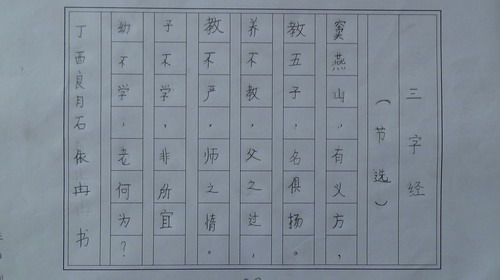 三字经
（节选）
窦燕山，有义方，
教五子，名俱扬。
养不教，父之过，
教不严，师之情。
子不学，非所宜
幼不学，老何为？
丁酉良月石依冉书